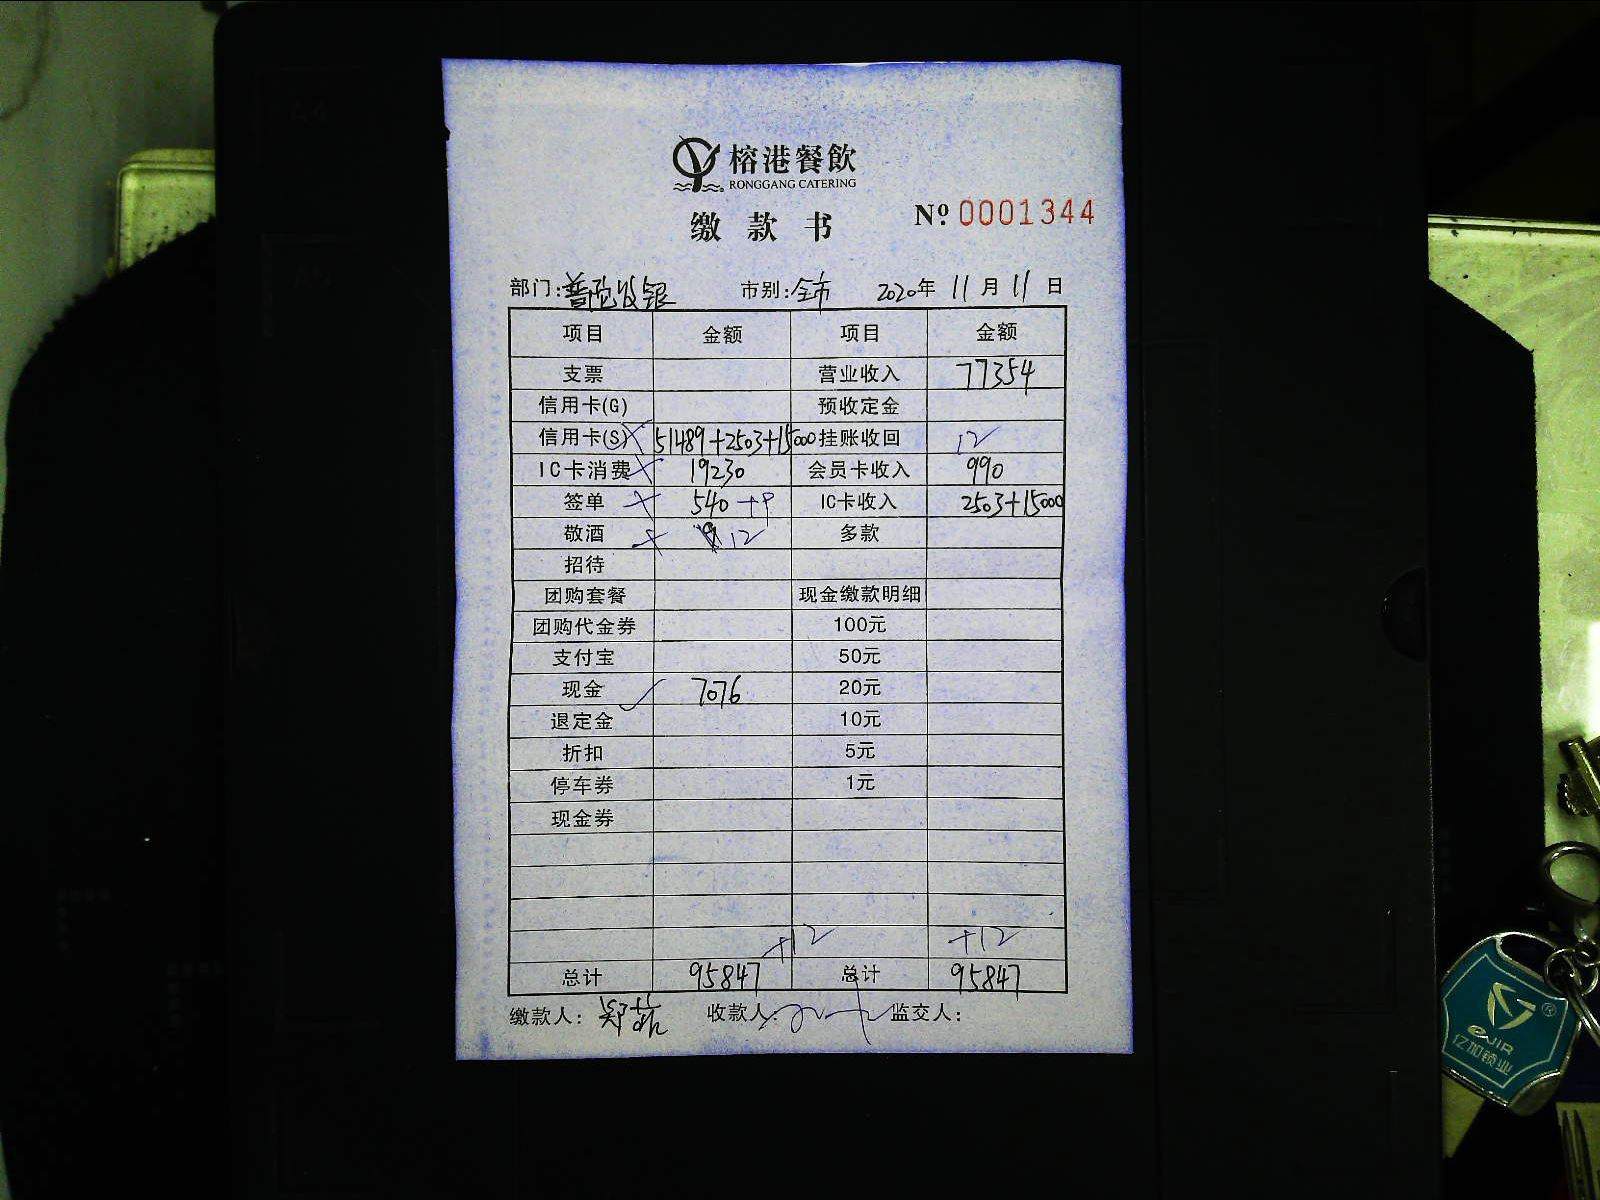 榕港餐飲
RONGGANG CATERING
缴款书 Nº 0001344
部门:普陀收银 市别:全市 2020年11月11日
项目 金额 项目 金额
支票 营业收入 77354
信用卡(G) 预收定金
信用卡(S) 51489+2503+15000 挂账收回 12
IC卡消费 19230 会员卡收入 990
签单 540 IC卡收入 2503+15000
敬酒 12 多款
招待
团购套餐 现金缴款明细
团购代金券 100元
支付宝 50元
现金 7076 20元
退定金 10元
折扣 5元
停车券 1元
现金券
+12 +12
总计 95847 总计 95847
缴款人: 收款人: 监交人:
eJIR
亿加锁业